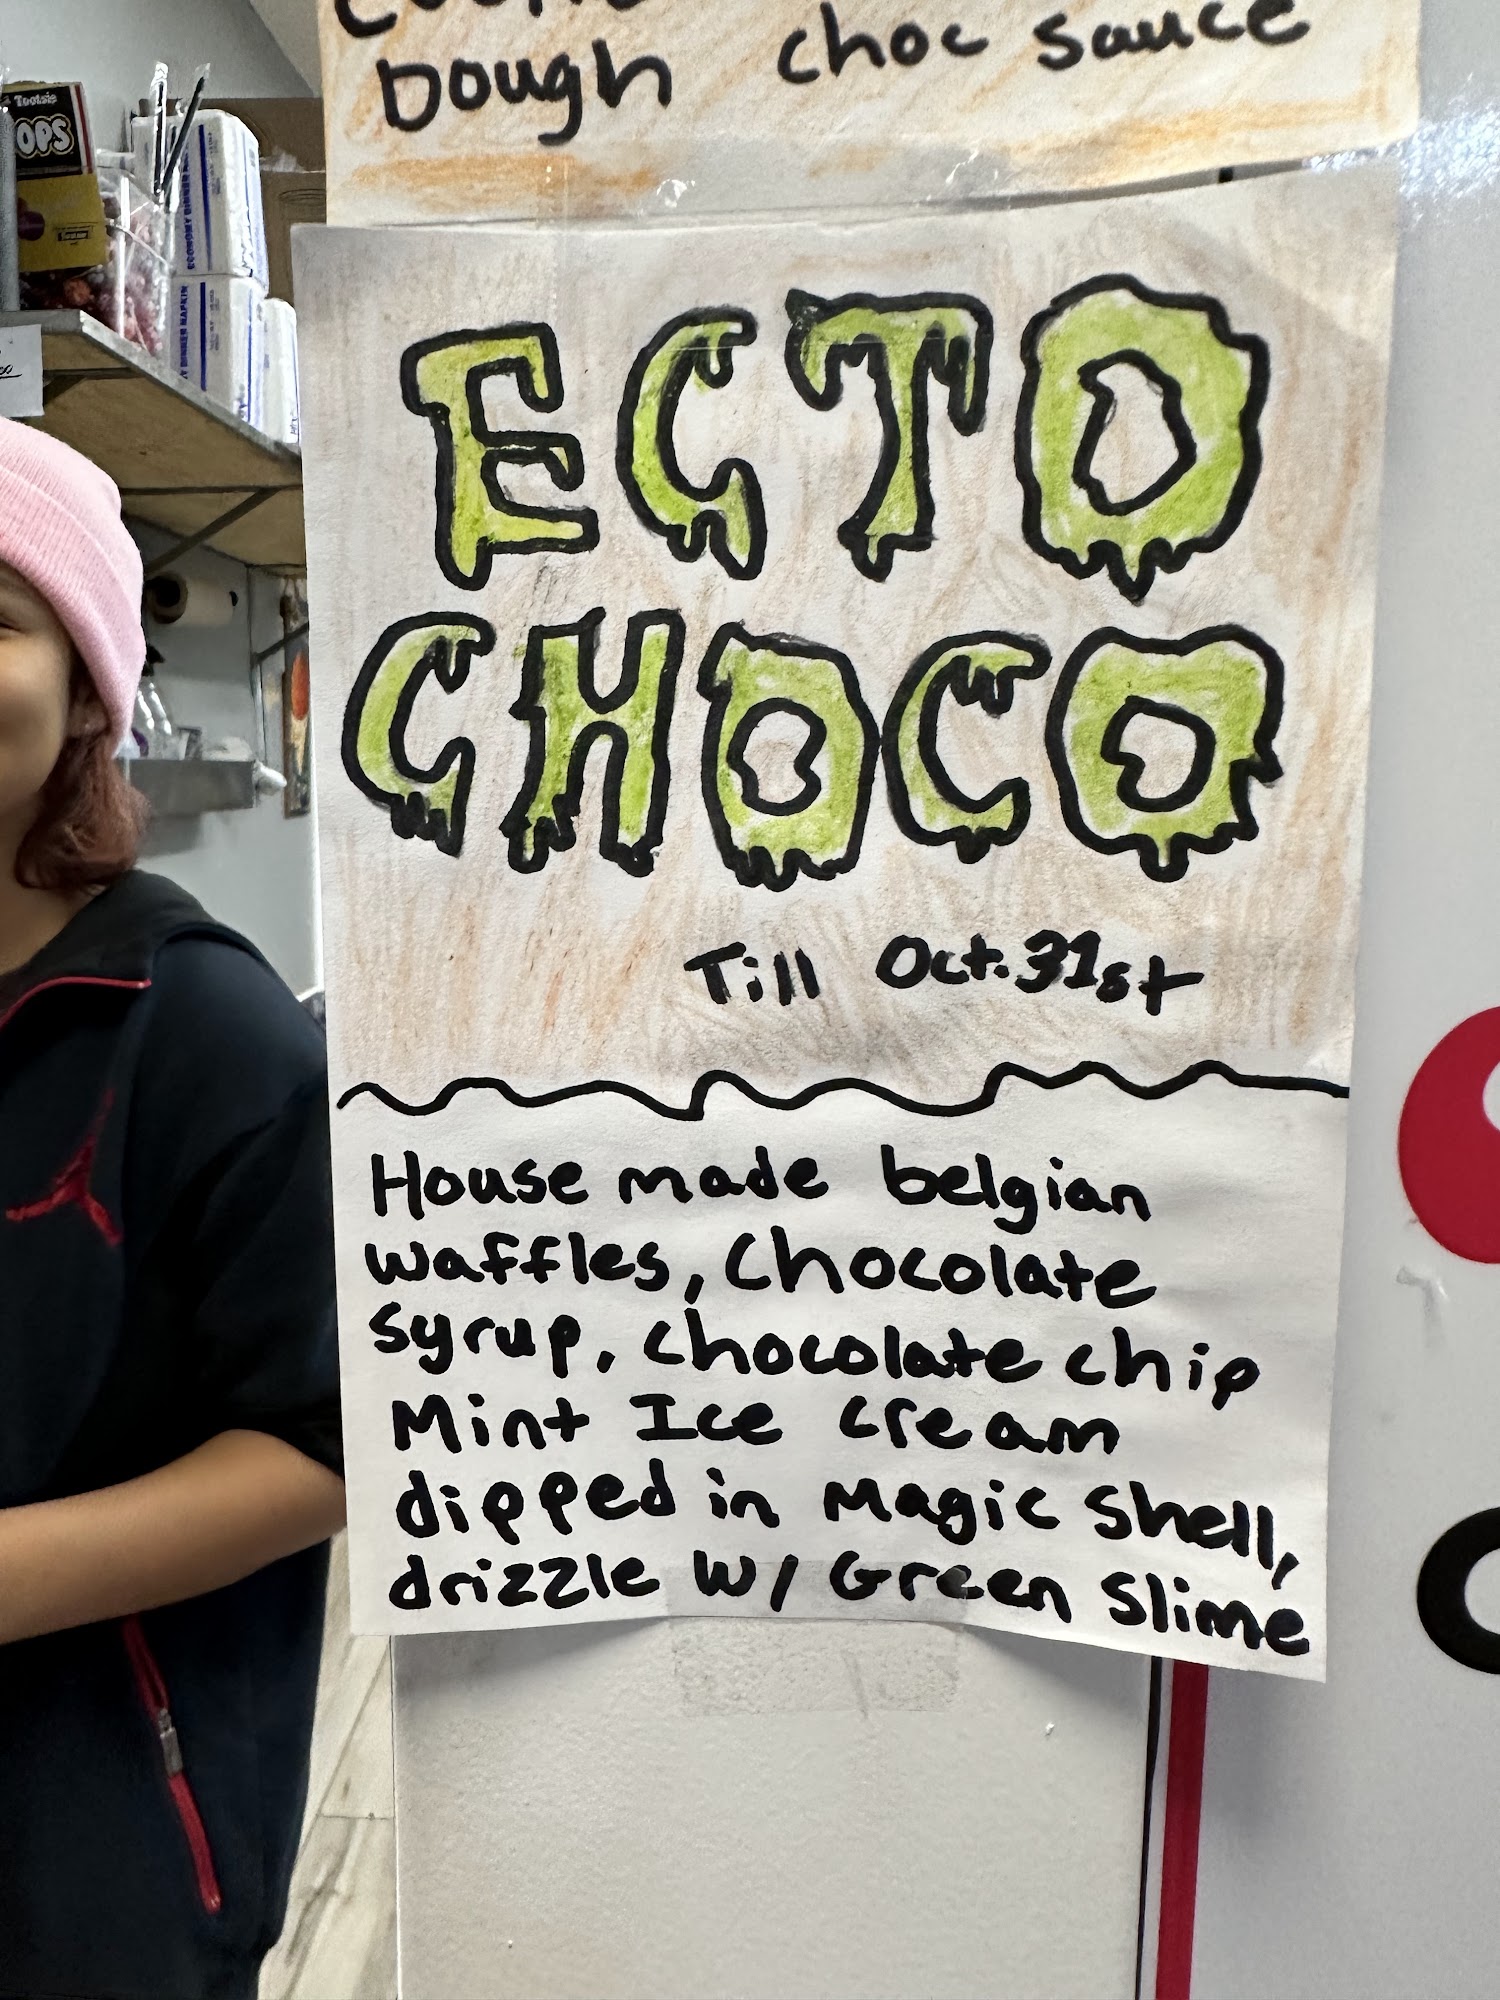 Dough choc sauce
ECTO
CHOCO
Till Oct. 31st
House made belgian
waffles, Chocolate
syrup, chocolate chip
Mint Ice cream
dipped in Magic Shell,
drizzle w/ Green Slime
Tootsie
OPS
ECONOMY DINNER NAPKIN
Y DINNER NAPKIN